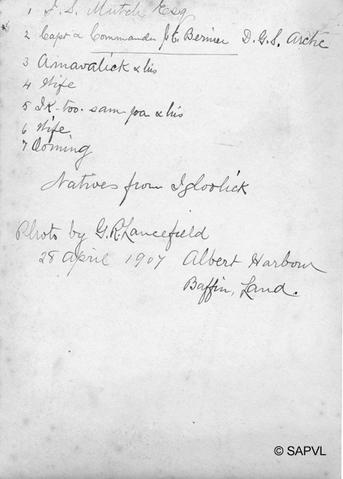 1 J. S. Mutch Esq
2 Capt & Commander J. E. Bernier D. G. S. Arctic
3 Amavalick & his
4 Wife
5 Ik-too-sam-poa & his
6 Wife
7 Ooming
Natives from Igloolick
Photo by G. R. Lancefield
28 April 1907 Albert Harbour
Baffin, Land.
© SAPVL